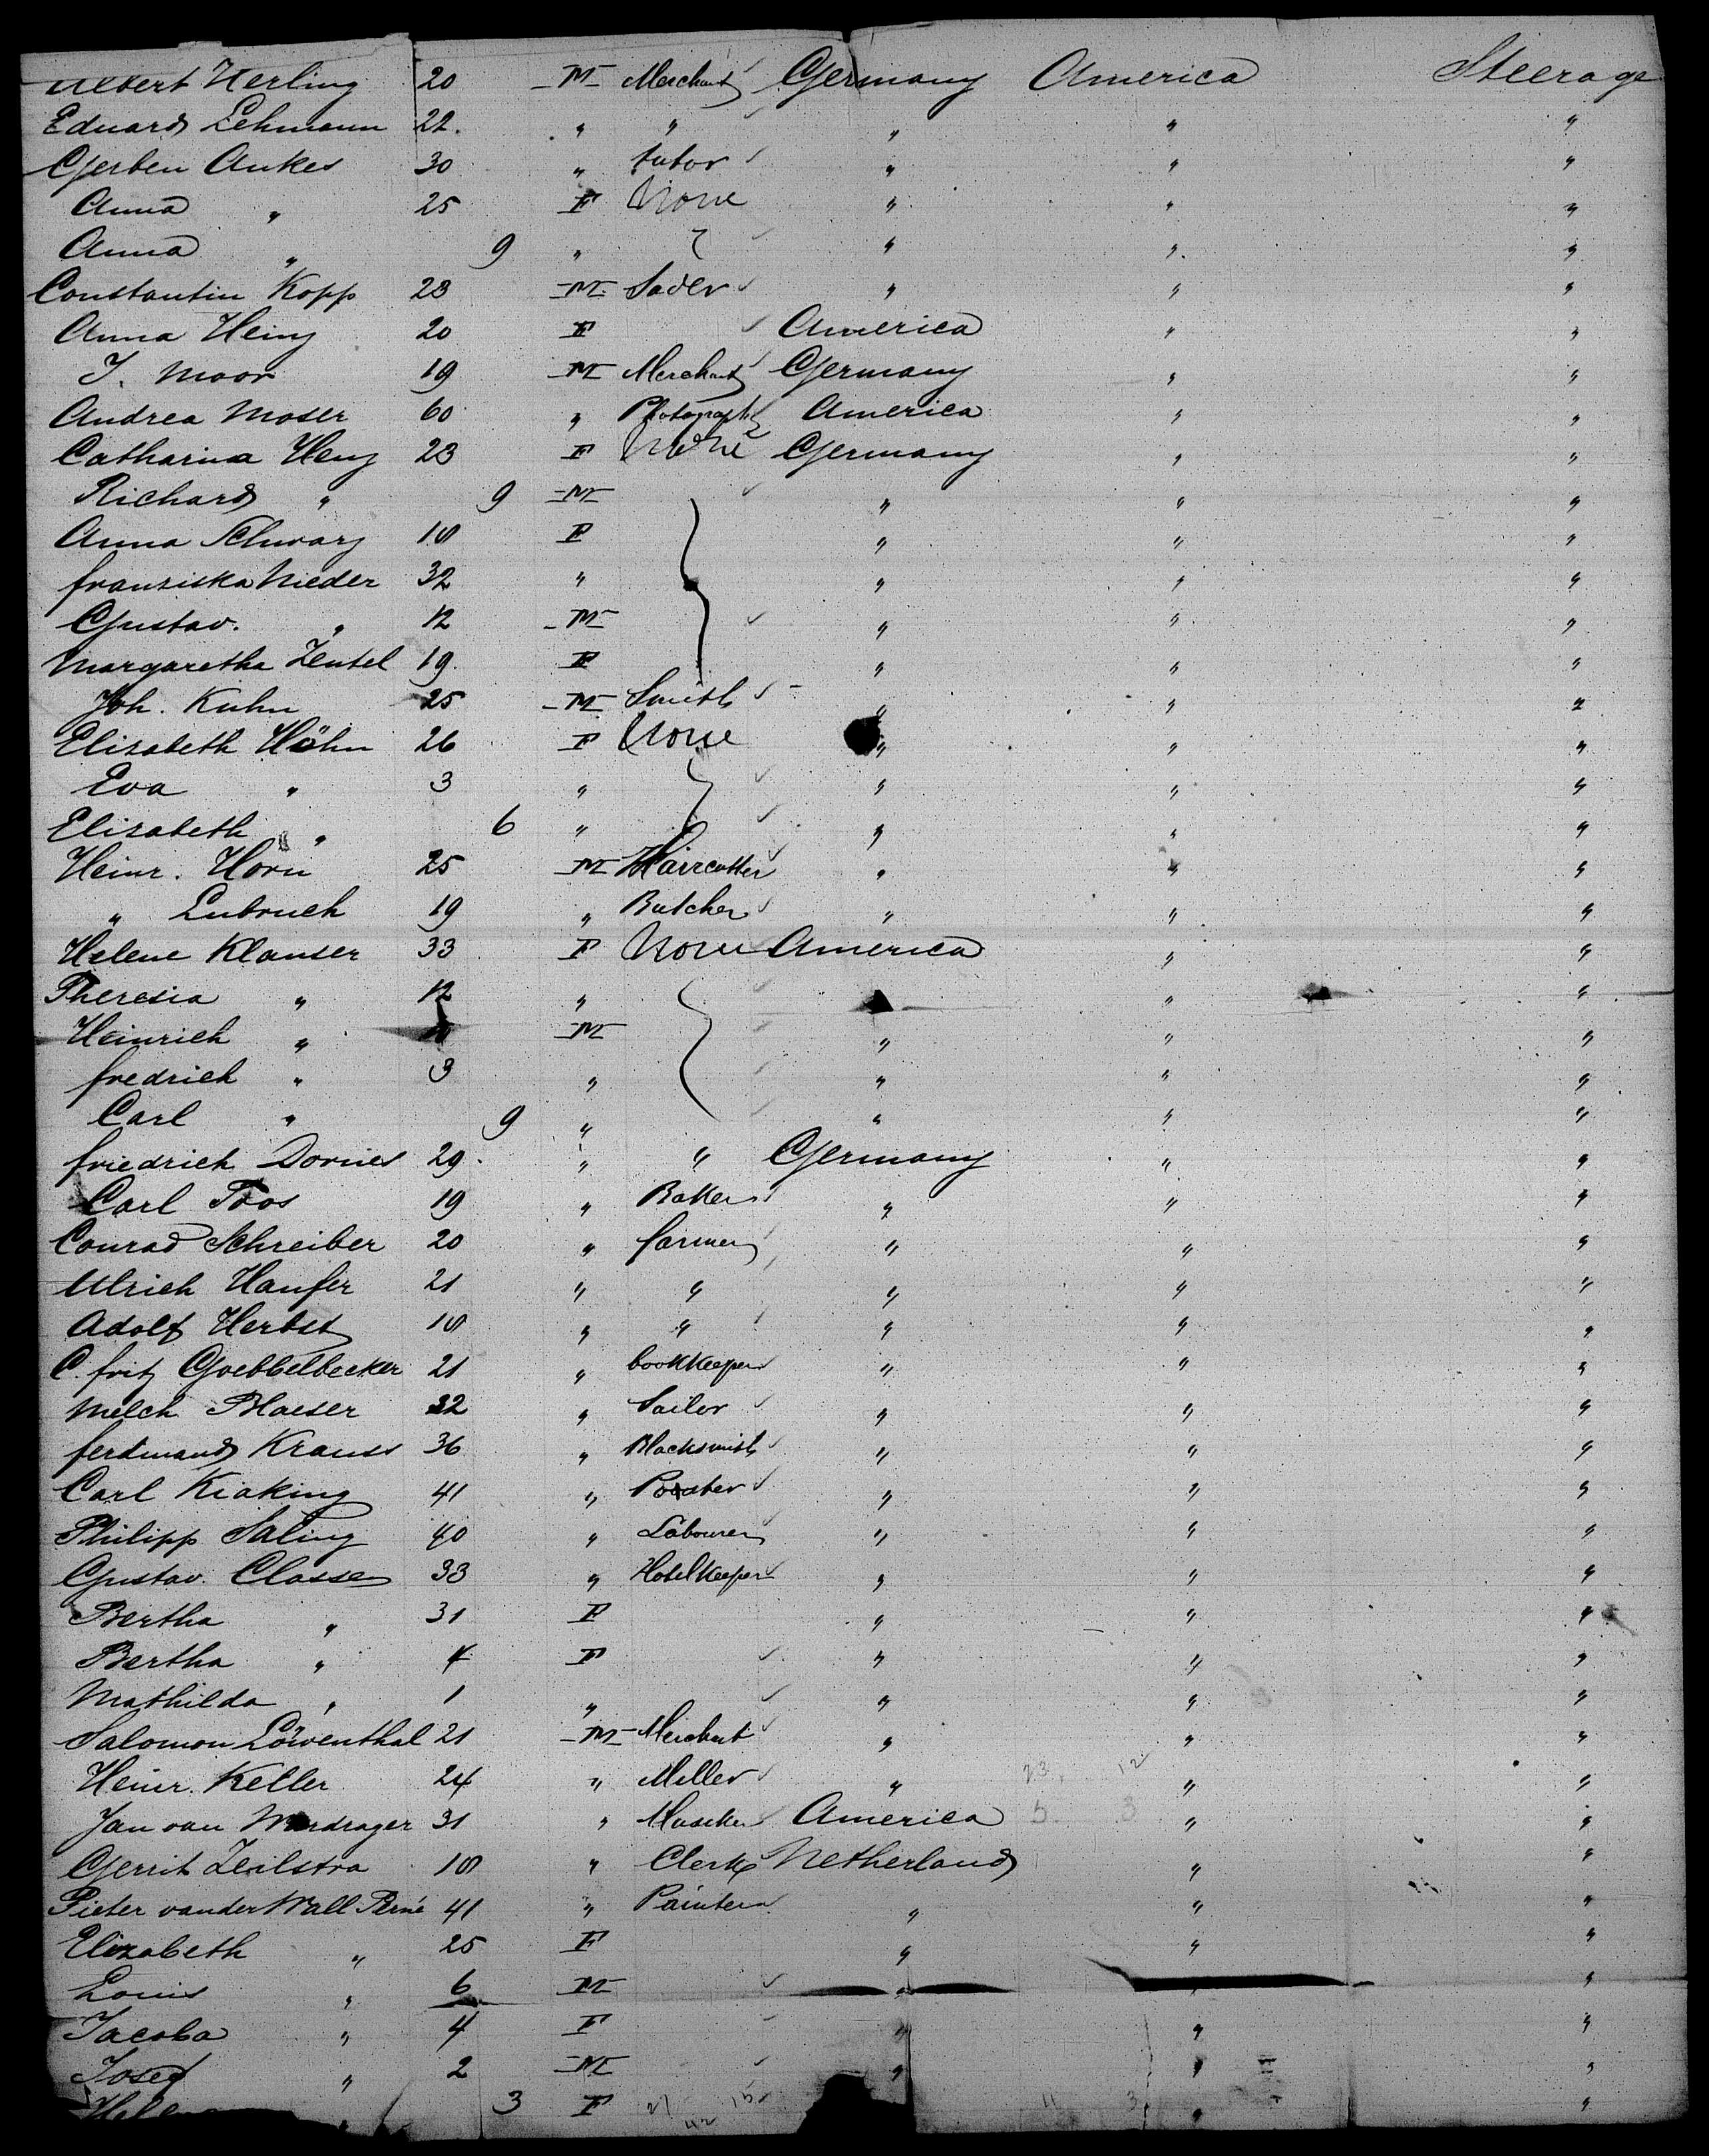 Albert Herling 20 M Merchant Germany America Steerage
Eduard Lehmann 22. " " " " "
Gerben Aukes 30 " tutor " " "
Anna " 25 F None " " "
Anna " 9 " " " "
Constantin Kopp 23 M Sadler " " "
Anna Heinz 20 F America " "
J. Moor 19 M Merchant Germany " "
Andrea Moser 60 " Photograph America " "
Catharina Henz 23 F None Germany " "
Richard " 9 M " " "
Anna Schwarz 18 F " " "
franziska Nieder 32 " " " "
Gustav. " 12 M " " "
Margaretha Zentel 19. F " " "
Joh. Kuhn 25 M Smith " " "
Elisabeth Höhn 26 F None " " "
Eva " 3 " " " "
Elisabeth " 6 " " " "
Heinr. Horn 25 M Haircutter " " "
" Lubruch 19 " Butcher " " "
Helene Klauser 33 F None America " "
Theresia " 12 " " " "
Heinrich " M " " "
fredrich " 3 " " " "
Carl " 9 " " " "
friedrich Dornier 29 " " Germany " "
Carl Toos 19 " Baker " " "
Conrad Schreiber 20 " farmer " " "
Ulrich Haufer 21 " " " " "
Adolf Herbst 18 " " " " "
C. fritz Goebbelbecker 21 " bookkeeper " " "
Melch Blaeser 32 " Sailor " " "
ferdinand Krauss 36 " Blacksmith " " "
Carl Kiaking 41 " " " "
Philipp Saling 40 " Labourer " " "
Gustav. Classen 33 " Hotelkeeper " " "
Bertha " 31 F " " "
Bertha " 4 F " " "
Mathilda " 1 " " " "
Salomon Löwenthal 21 M Merchant " " "
Heinr. Keller 24 " Miller " " "
Jan van 31 " America " "
Gerrit Zeilstra 18 " Clerk Netherland " "
Pieter vander Wall Perné 41 " Painter " " "
Elizabeth " 25 F " " "
Louis " 6 M " " "
Jacoba " 4 F " " "
Josef " 2 M " " "
3 F " "